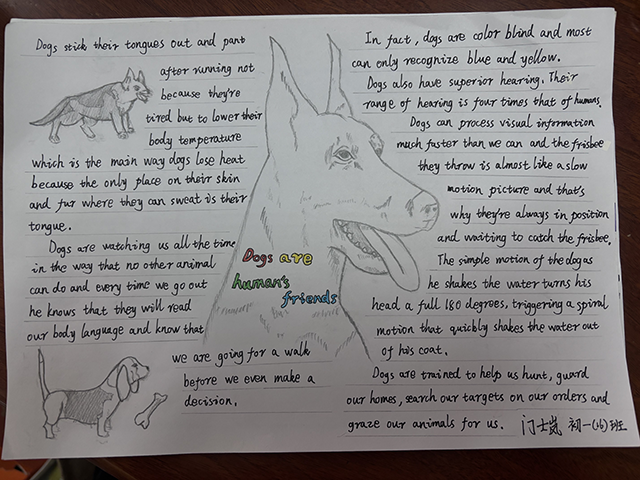 Dogs stick their tongues out and pant
after running not
because they're
tired but to lower their
body temperature
which is the main way dogs lose heat
because the only place on their skin
and fur where they can sweat is their
tongue.
Dogs are watching us all the time
in the way that no other animal
can do and every time we go out
he knows that they will read
our body language and know that
we are going for a walk
before we even make a
decision.
Dogs are
human's
friends
In fact, dogs are color blind and most
can only recognize blue and yellow.
Dogs also have superior hearing. Their
range of hearing is four times that of humans.
Dogs can process visual information
much faster than we can and the frisbee
they throw is almost like a slow
motion picture and that's
why they're always in position
and waiting to catch the frisbee.
The simple motion of the dog as
he shakes the water turns his
head a full 180 degrees, triggering a spiral
motion that quickly shakes the water out
of his coat.
Dogs are trained to help us hunt, guard
our homes, search our targets on our orders and
graze our animals for us. 门士岚 初一(16)班